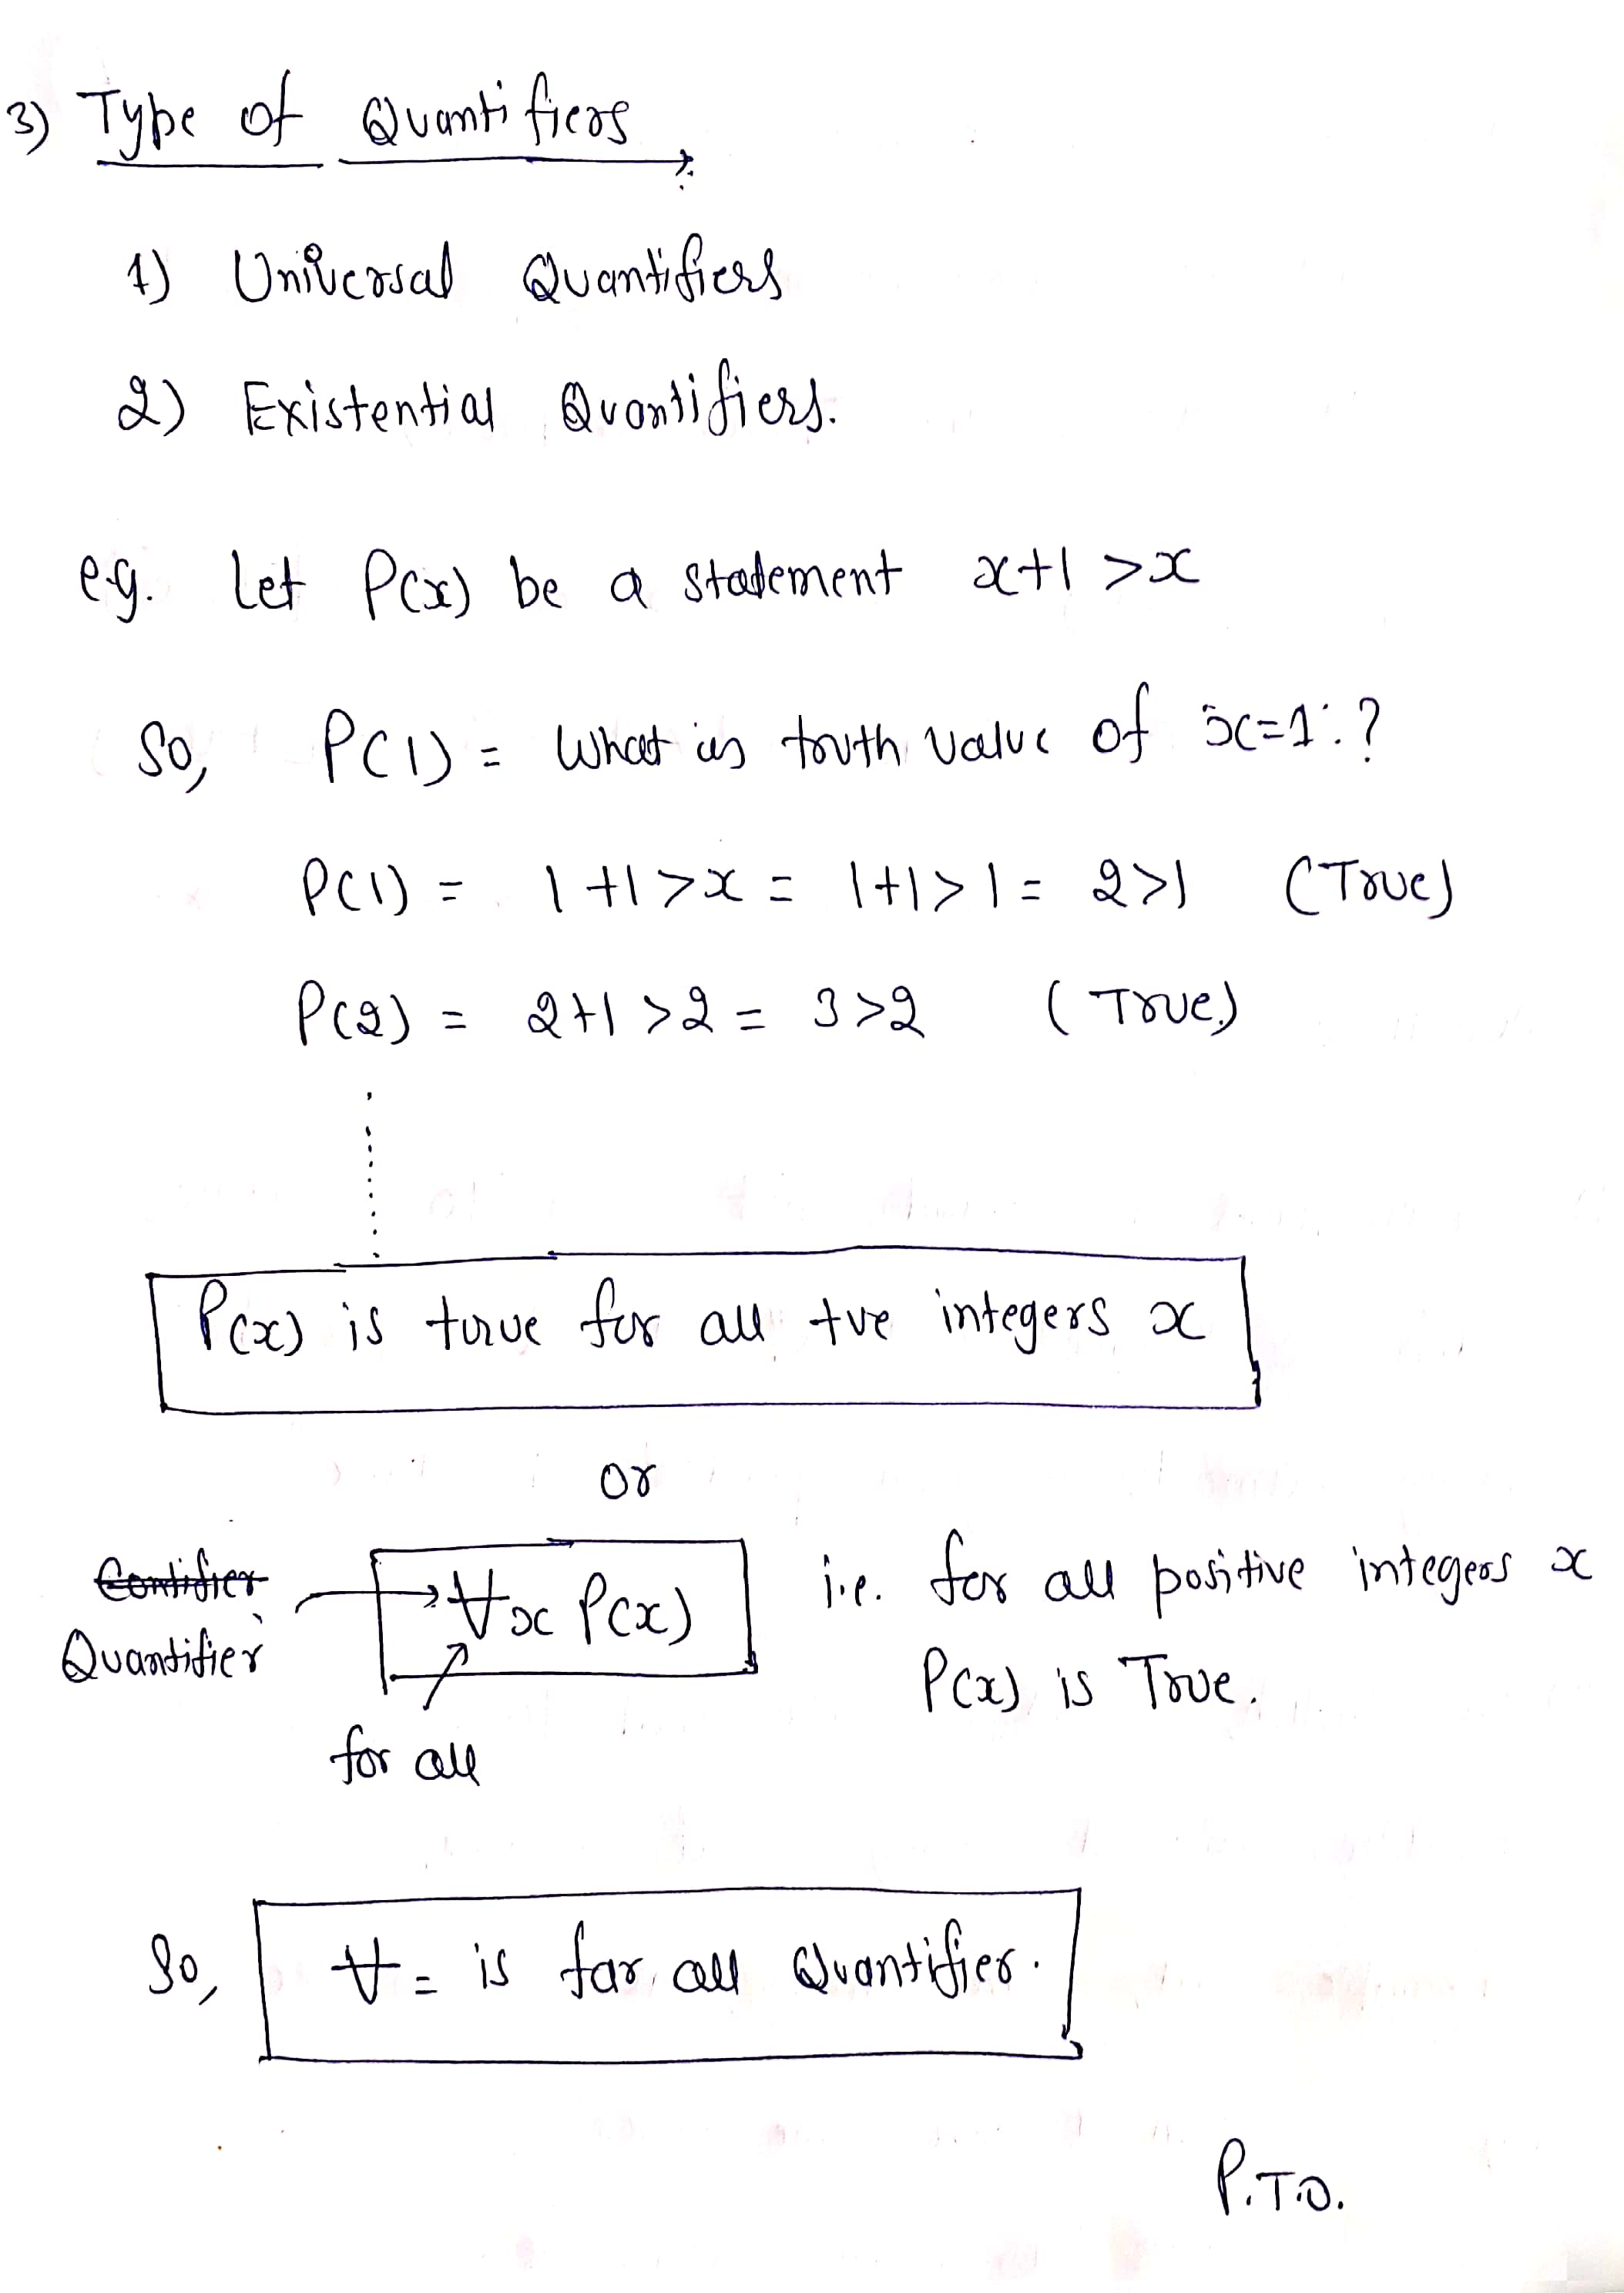 3) Type of Quantifiers
1) Universal Quantifiers
2) Existential Quantifiers.
e.g. Let P(x) be a statement x+1 > x
So, P(1) = What is truth value of x=1:?
P(1) = 1+1 > x = 1+1 > 1 = 2>1 (True)
P(2) = 2+1 > 2 = 3>2 (True)
P(x) is true for all +ve integers x
or
Contifier
Quantifier
∀x P(x) i.e. for all positive integers x
P(x) is True.
for all
So, ∀ = is for all Quantifier.
P.T.O.